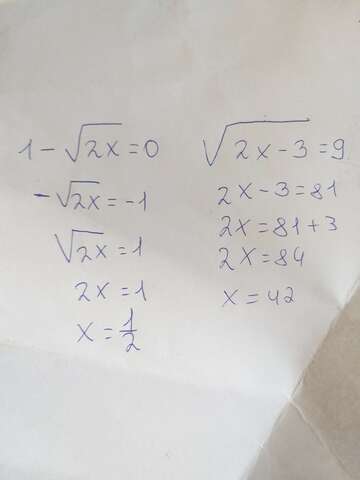 1 - √2x = 0
-√2x = -1
√2x = 1
2x = 1
x = 1/2
√2x - 3 = 9
2x - 3 = 81
2x = 81 + 3
2x = 84
x = 42